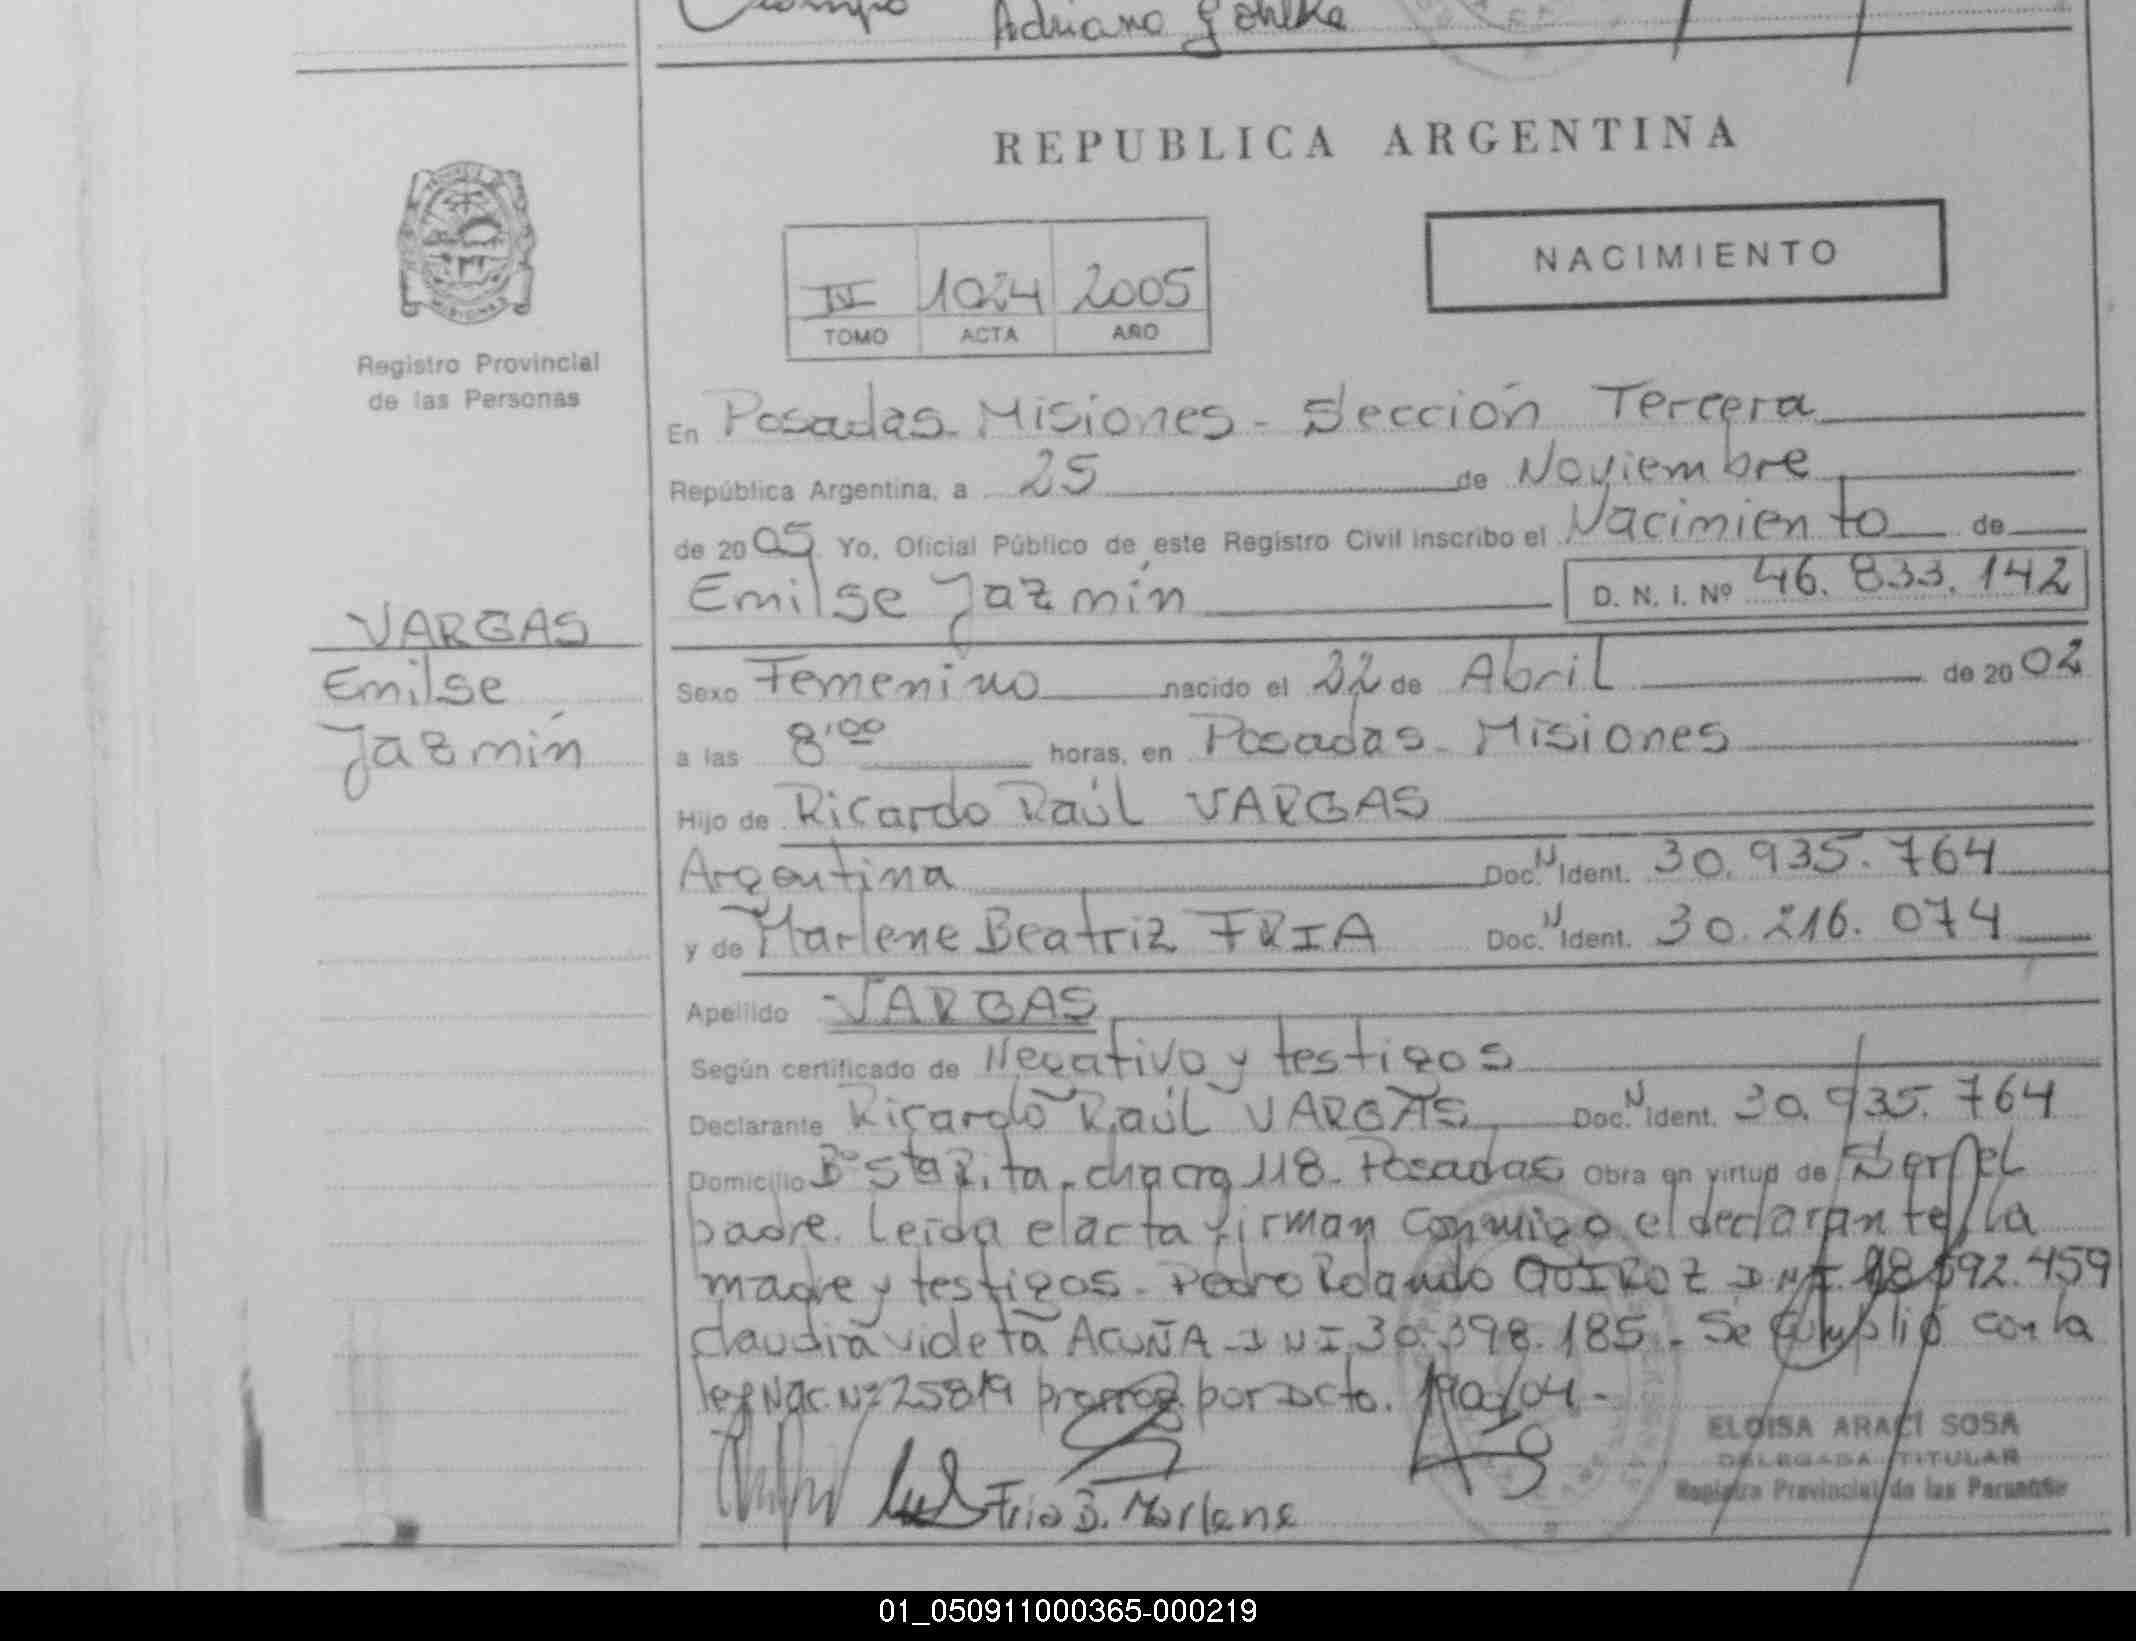 Adriano Gohlke
REPUBLICA ARGENTINA
NACIMIENTO
IV 1024 2005
TOMO ACTA AÑO
Registro Provincial
de las Personas
En Posadas - Misiones - Sección Tercera
República Argentina, a 25 de Noviembre
de 2005 Yo, Oficial Público de este Registro Civil inscribo el Nacimiento de
Emilse Jazmín D. N. I. Nº 46.833.142
VARGAS
Emilse
Jazmín
Sexo Femenino nacido el 22 de Abril de 2002
a las 8'00 horas, en Posadas - Misiones
Hijo de Ricardo Raúl VARGAS
Argentina Doc. N Ident. 30.935.764
y de Marlene Beatriz FRIA Doc. N Ident. 30.216.074
Apellido VARGAS
Según certificado de Negativo y testigos
Declarante Ricardo Raúl VARGAS Doc. N Ident. 30.935.764
Domicilio Bº Sta Rita - chacra 118 - Posadas Obra en virtud de Ser el
padre. Leída el acta firman conmigo el declarante, la
madre y testigos - Pedro Rolando QUIROZ DNI 692.459
Claudia Violeta ACUÑA - DNI 30.398.185 - Se cumplió con la
ley Nac. Nº 25819 prorrog. por Dcto. 190/04 -
Fria B. Marlene
ELOISA ARACI SOSA
DELEGADA TITULAR
Registro Provincial de las Personas
01_050911000365-000219